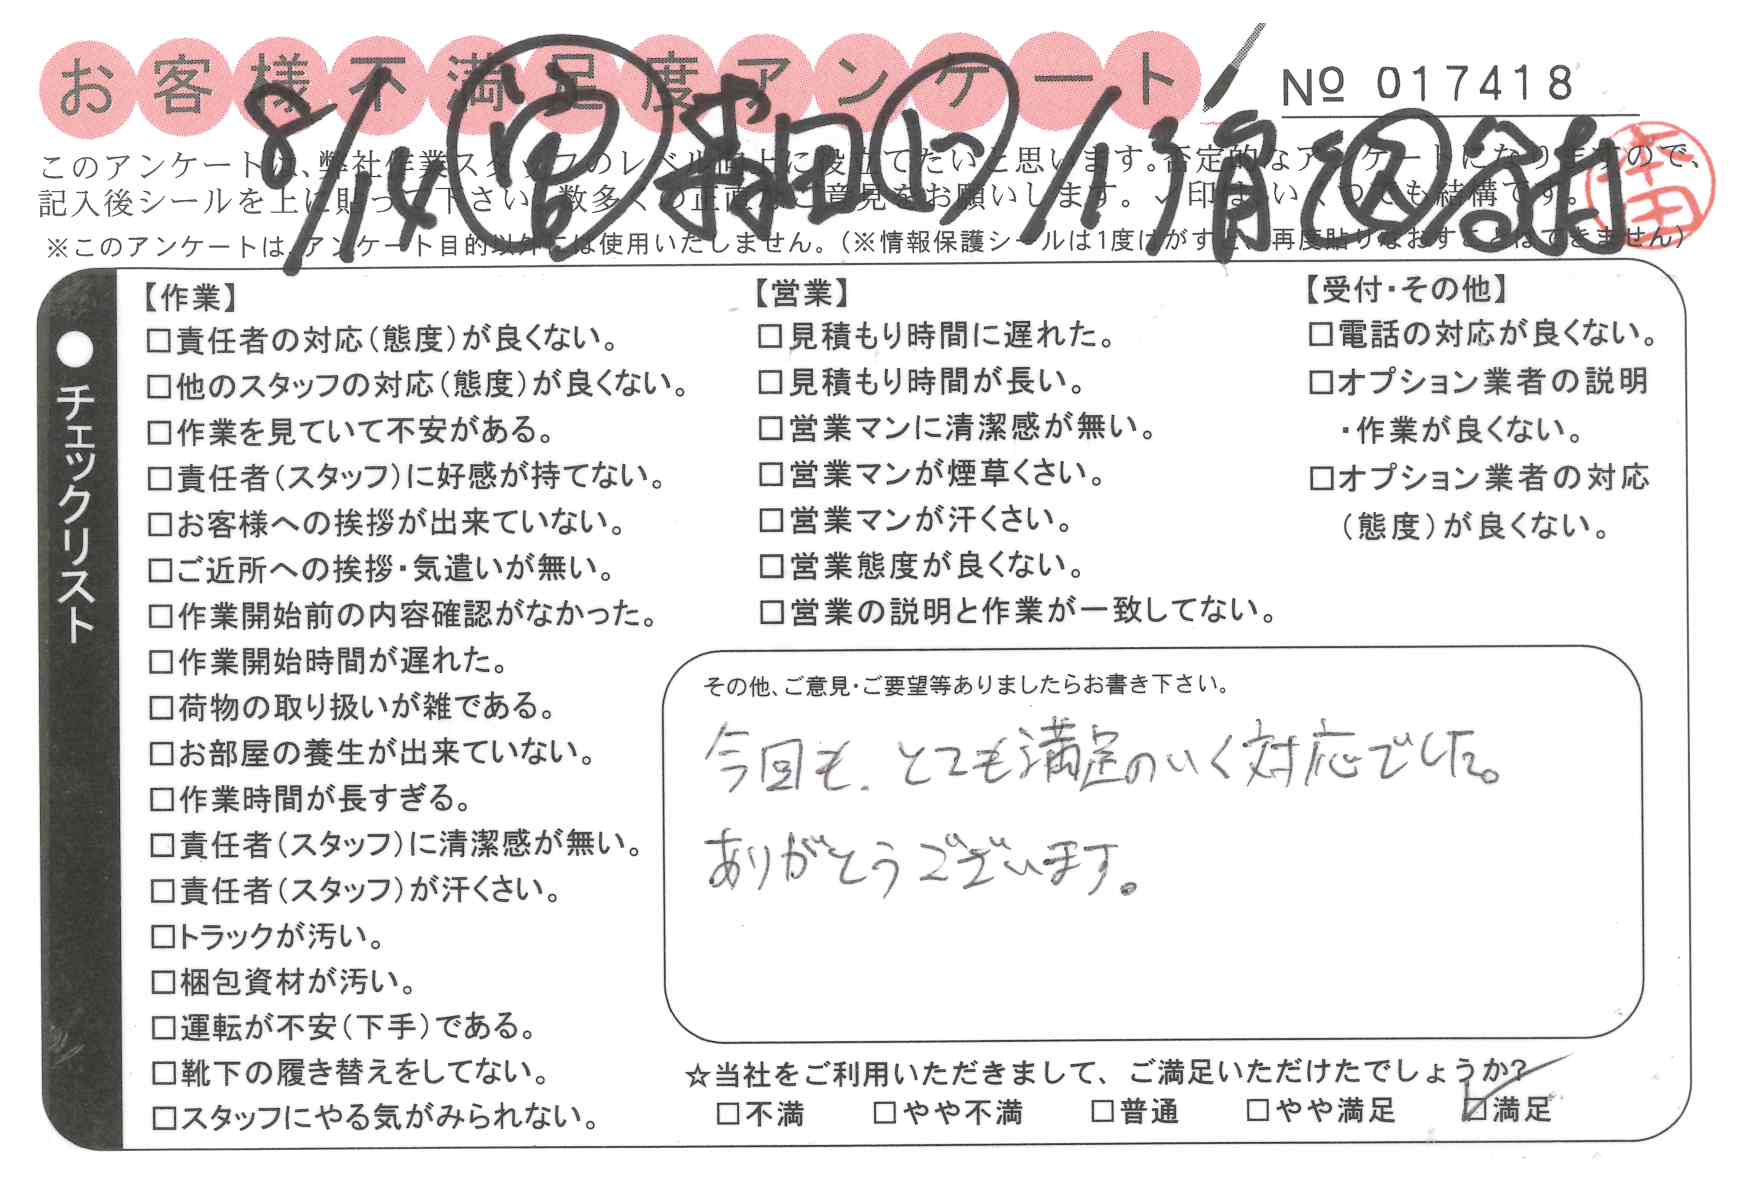 お客様不満足度アンケート
№ 017418
8/14
このアンケートは、弊社作業スタッフのレベル向上に役立てたいと思います。否定的なアンケートになりますので、
記入後シールを上に貼って下さい。数多くの正直なご意見をお願いします。✓印はいくつでも結構です。
※このアンケートは、アンケート目的以外には使用いたしません。(※情報保護シールは1度はがすと、再度貼りなおすことはできません)
●チェックリスト
【作業】
□責任者の対応(態度)が良くない。
□他のスタッフの対応(態度)が良くない。
□作業を見ていて不安がある。
□責任者(スタッフ)に好感が持てない。
□お客様への挨拶が出来ていない。
□ご近所への挨拶・気遣いが無い。
□作業開始前の内容確認がなかった。
□作業開始時間が遅れた。
□荷物の取り扱いが雑である。
□お部屋の養生が出来ていない。
□作業時間が長すぎる。
□責任者(スタッフ)に清潔感が無い。
□責任者(スタッフ)が汗くさい。
□トラックが汚い。
□梱包資材が汚い。
□運転が不安(下手)である。
□靴下の履き替えをしてない。
□スタッフにやる気がみられない。
【営業】
□見積もり時間に遅れた。
□見積もり時間が長い。
□営業マンに清潔感が無い。
□営業マンが煙草くさい。
□営業マンが汗くさい。
□営業態度が良くない。
□営業の説明と作業が一致してない。
【受付・その他】
□電話の対応が良くない。
□オプション業者の説明
・作業が良くない。
□オプション業者の対応
(態度)が良くない。
その他、ご意見・ご要望等ありましたらお書き下さい。
今回も、とても満足のいく対応でした。
ありがとうございます。
☆当社をご利用いただきまして、ご満足いただけたでしょうか?
□不満 □やや不満 □普通 □やや満足 ☑満足